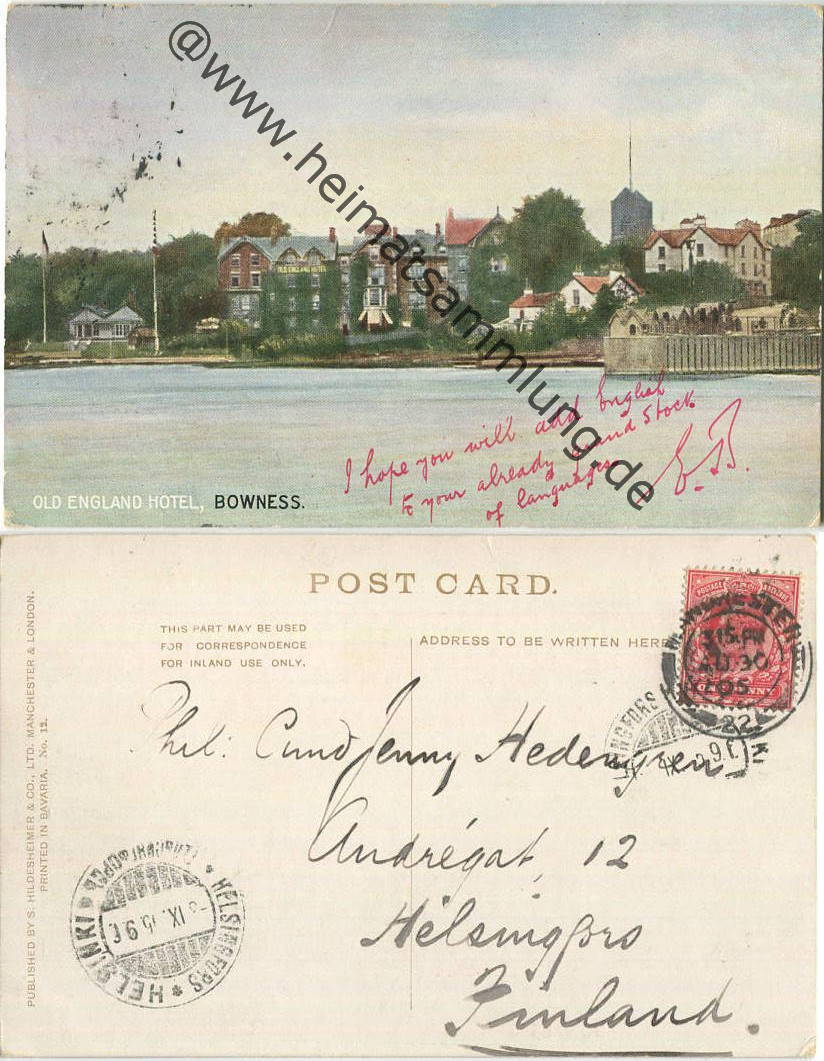 @www.heimatsammlung.de
I hope you will add English
to your already grand Stock
of languages
E.B.
OLD ENGLAND HOTEL, BOWNESS.
POST CARD.
THIS PART MAY BE USED
FOR CORRESPONDENCE
FOR INLAND USE ONLY.
ADDRESS TO BE WRITTEN HERE
POSTAGE REVENUE
MANCHESTER
3.15 PM
AU 30
05
22
Phil: Cand Jenny
Andrégat, 12
Helsingfors
Finland.
HELSINKI * HELSINGFORS *
IX
PUBLISHED BY S. HILDESHEIMER & CO., LTD. MANCHESTER & LONDON.
PRINTED IN BAVARIA. No. 12.